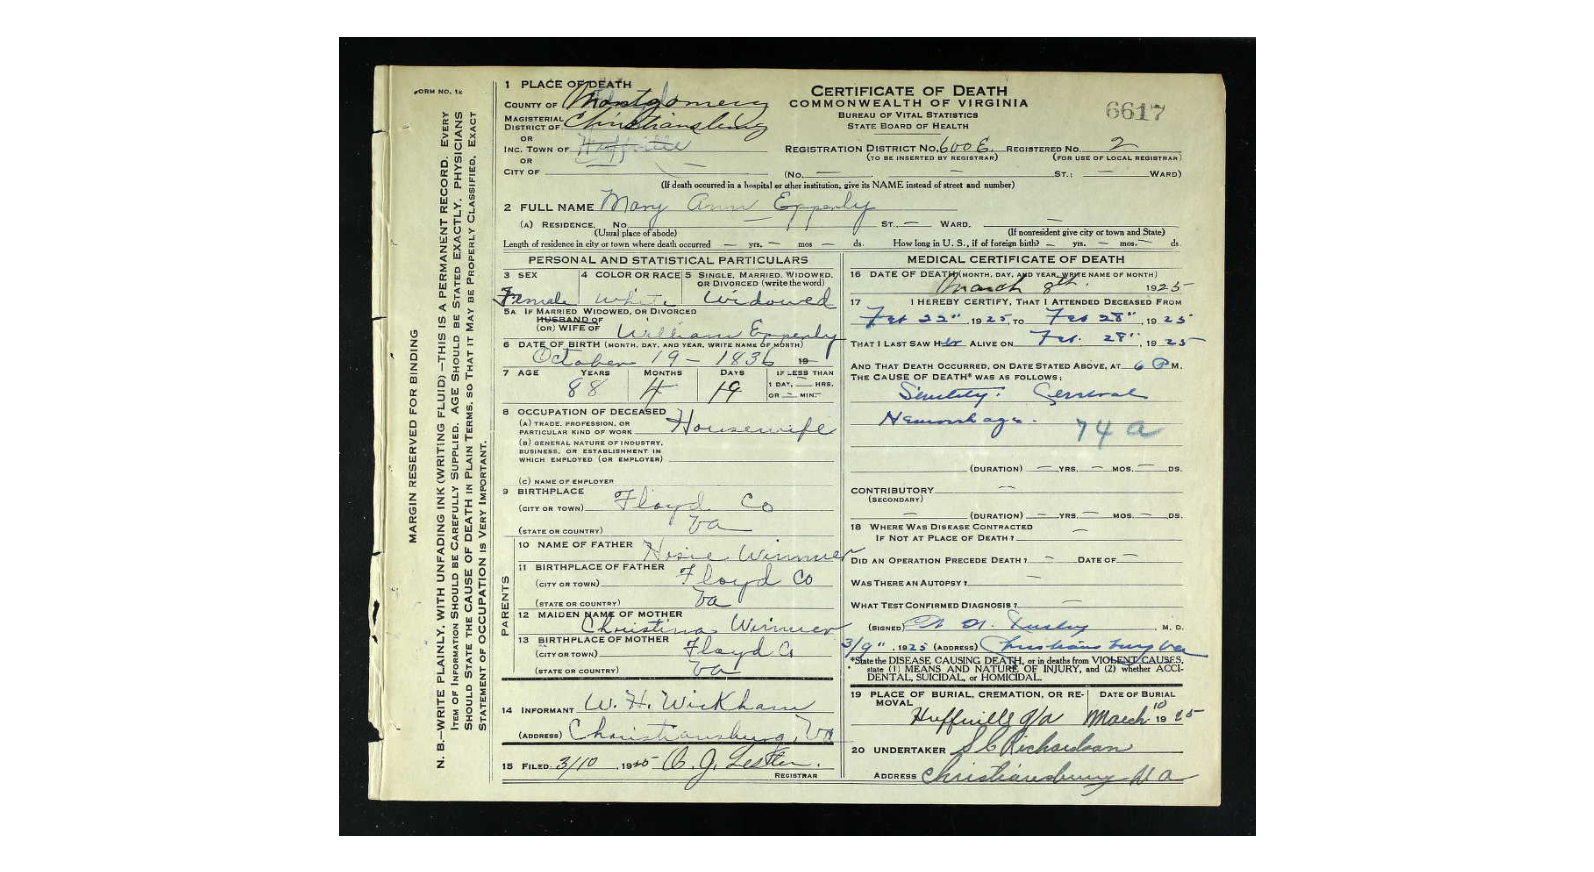 FORM NO. 1x
MARGIN RESERVED FOR BINDING
N. B.—WRITE PLAINLY, WITH UNFADING INK (WRITING FLUID) —THIS IS A PERMANENT RECORD. EVERY
ITEM OF INFORMATION SHOULD BE CAREFULLY SUPPLIED. AGE SHOULD BE STATED EXACTLY. PHYSICIANS
SHOULD STATE THE CAUSE OF DEATH IN PLAIN TERMS, SO THAT IT MAY BE PROPERLY CLASSIFIED. EXACT
STATEMENT OF OCCUPATION IS VERY IMPORTANT.
1 PLACE OF DEATH
COUNTY OF Montgomery
MAGISTERIAL DISTRICT OF Christiansburg
OR
INC. TOWN OF
OR
CITY OF
CERTIFICATE OF DEATH
COMMONWEALTH OF VIRGINIA
BUREAU OF VITAL STATISTICS
STATE BOARD OF HEALTH
6617
REGISTRATION DISTRICT NO. 600E. REGISTERED NO. 2
(TO BE INSERTED BY REGISTRAR) (FOR USE OF LOCAL REGISTRAR)
(NO. — — ST.; — WARD)
(If death occurred in a hospital or other institution, give its NAME instead of street and number)
2 FULL NAME Mary Ann Epperly
(A) RESIDENCE. NO. — ST., — WARD. —
(Usual place of abode) (If nonresident give city or town and State)
Length of residence in city or town where death occurred — yrs. — mos — ds. How long in U. S., if of foreign birth? — yrs. — mos. — ds.
PERSONAL AND STATISTICAL PARTICULARS
3 SEX 4 COLOR OR RACE 5 SINGLE, MARRIED, WIDOWED, OR DIVORCED (write the word)
Female White Widowed
5A IF MARRIED WIDOWED, OR DIVORCED
HUSBAND OF
(OR) WIFE OF William Epperly
6 DATE OF BIRTH (MONTH, DAY, AND YEAR, WRITE NAME OF MONTH)
October 19 - 1836 19
7 AGE YEARS MONTHS DAYS IF LESS THAN
88 4 19 1 DAY, — HRS.
OR — MIN.
8 OCCUPATION OF DECEASED
(A) TRADE, PROFESSION, OR
PARTICULAR KIND OF WORK Housewife
(B) GENERAL NATURE OF INDUSTRY,
BUSINESS, OR ESTABLISHMENT IN
WHICH EMPLOYED (OR EMPLOYER)
(C) NAME OF EMPLOYER
9 BIRTHPLACE
(CITY OR TOWN) Floyd Co
(STATE OR COUNTRY) Va
PARENTS
10 NAME OF FATHER Hosie Wimmer
11 BIRTHPLACE OF FATHER
(CITY OR TOWN) Floyd Co
(STATE OR COUNTRY) Va
12 MAIDEN NAME OF MOTHER
Christina Wimmer
13 BIRTHPLACE OF MOTHER
(CITY OR TOWN) Floyd Co
(STATE OR COUNTRY) Va
14 INFORMANT W. H. Wickham
(ADDRESS) Christiansburg, VA
15 FILED 3/10, 1925 A. J. Lester.
REGISTRAR
MEDICAL CERTIFICATE OF DEATH
16 DATE OF DEATH (MONTH, DAY, AND YEAR, WRITE NAME OF MONTH)
March 8th. 1925
17 I HEREBY CERTIFY, THAT I ATTENDED DECEASED FROM
Feb 22", 1925, TO Feb 28", 1925
THAT I LAST SAW Her ALIVE ON Feb. 28", 1925
AND THAT DEATH OCCURRED, ON DATE STATED ABOVE, AT 6 P M.
THE CAUSE OF DEATH* WAS AS FOLLOWS:
Senility. Cerebral
Hemorrhage. 74 a
(DURATION) — YRS. — MOS. — DS.
CONTRIBUTORY —
(SECONDARY)
— (DURATION) — YRS. — MOS. — DS.
18 WHERE WAS DISEASE CONTRACTED
IF NOT AT PLACE OF DEATH? —
DID AN OPERATION PRECEDE DEATH? — DATE OF —
WAS THERE AN AUTOPSY? —
WHAT TEST CONFIRMED DIAGNOSIS? —
(SIGNED) M. D.
3/9", 1925 (ADDRESS) Christiansburg Va
*State the DISEASE CAUSING DEATH, or in deaths from VIOLENT CAUSES,
state (1) MEANS AND NATURE OF INJURY, and (2) whether ACCI-
DENTAL, SUICIDAL, or HOMICIDAL.
19 PLACE OF BURIAL, CREMATION, OR RE-MOVAL DATE OF BURIAL
Huffville Va March 10 1925
20 UNDERTAKER S C Richardson
ADDRESS Christiansburg Va